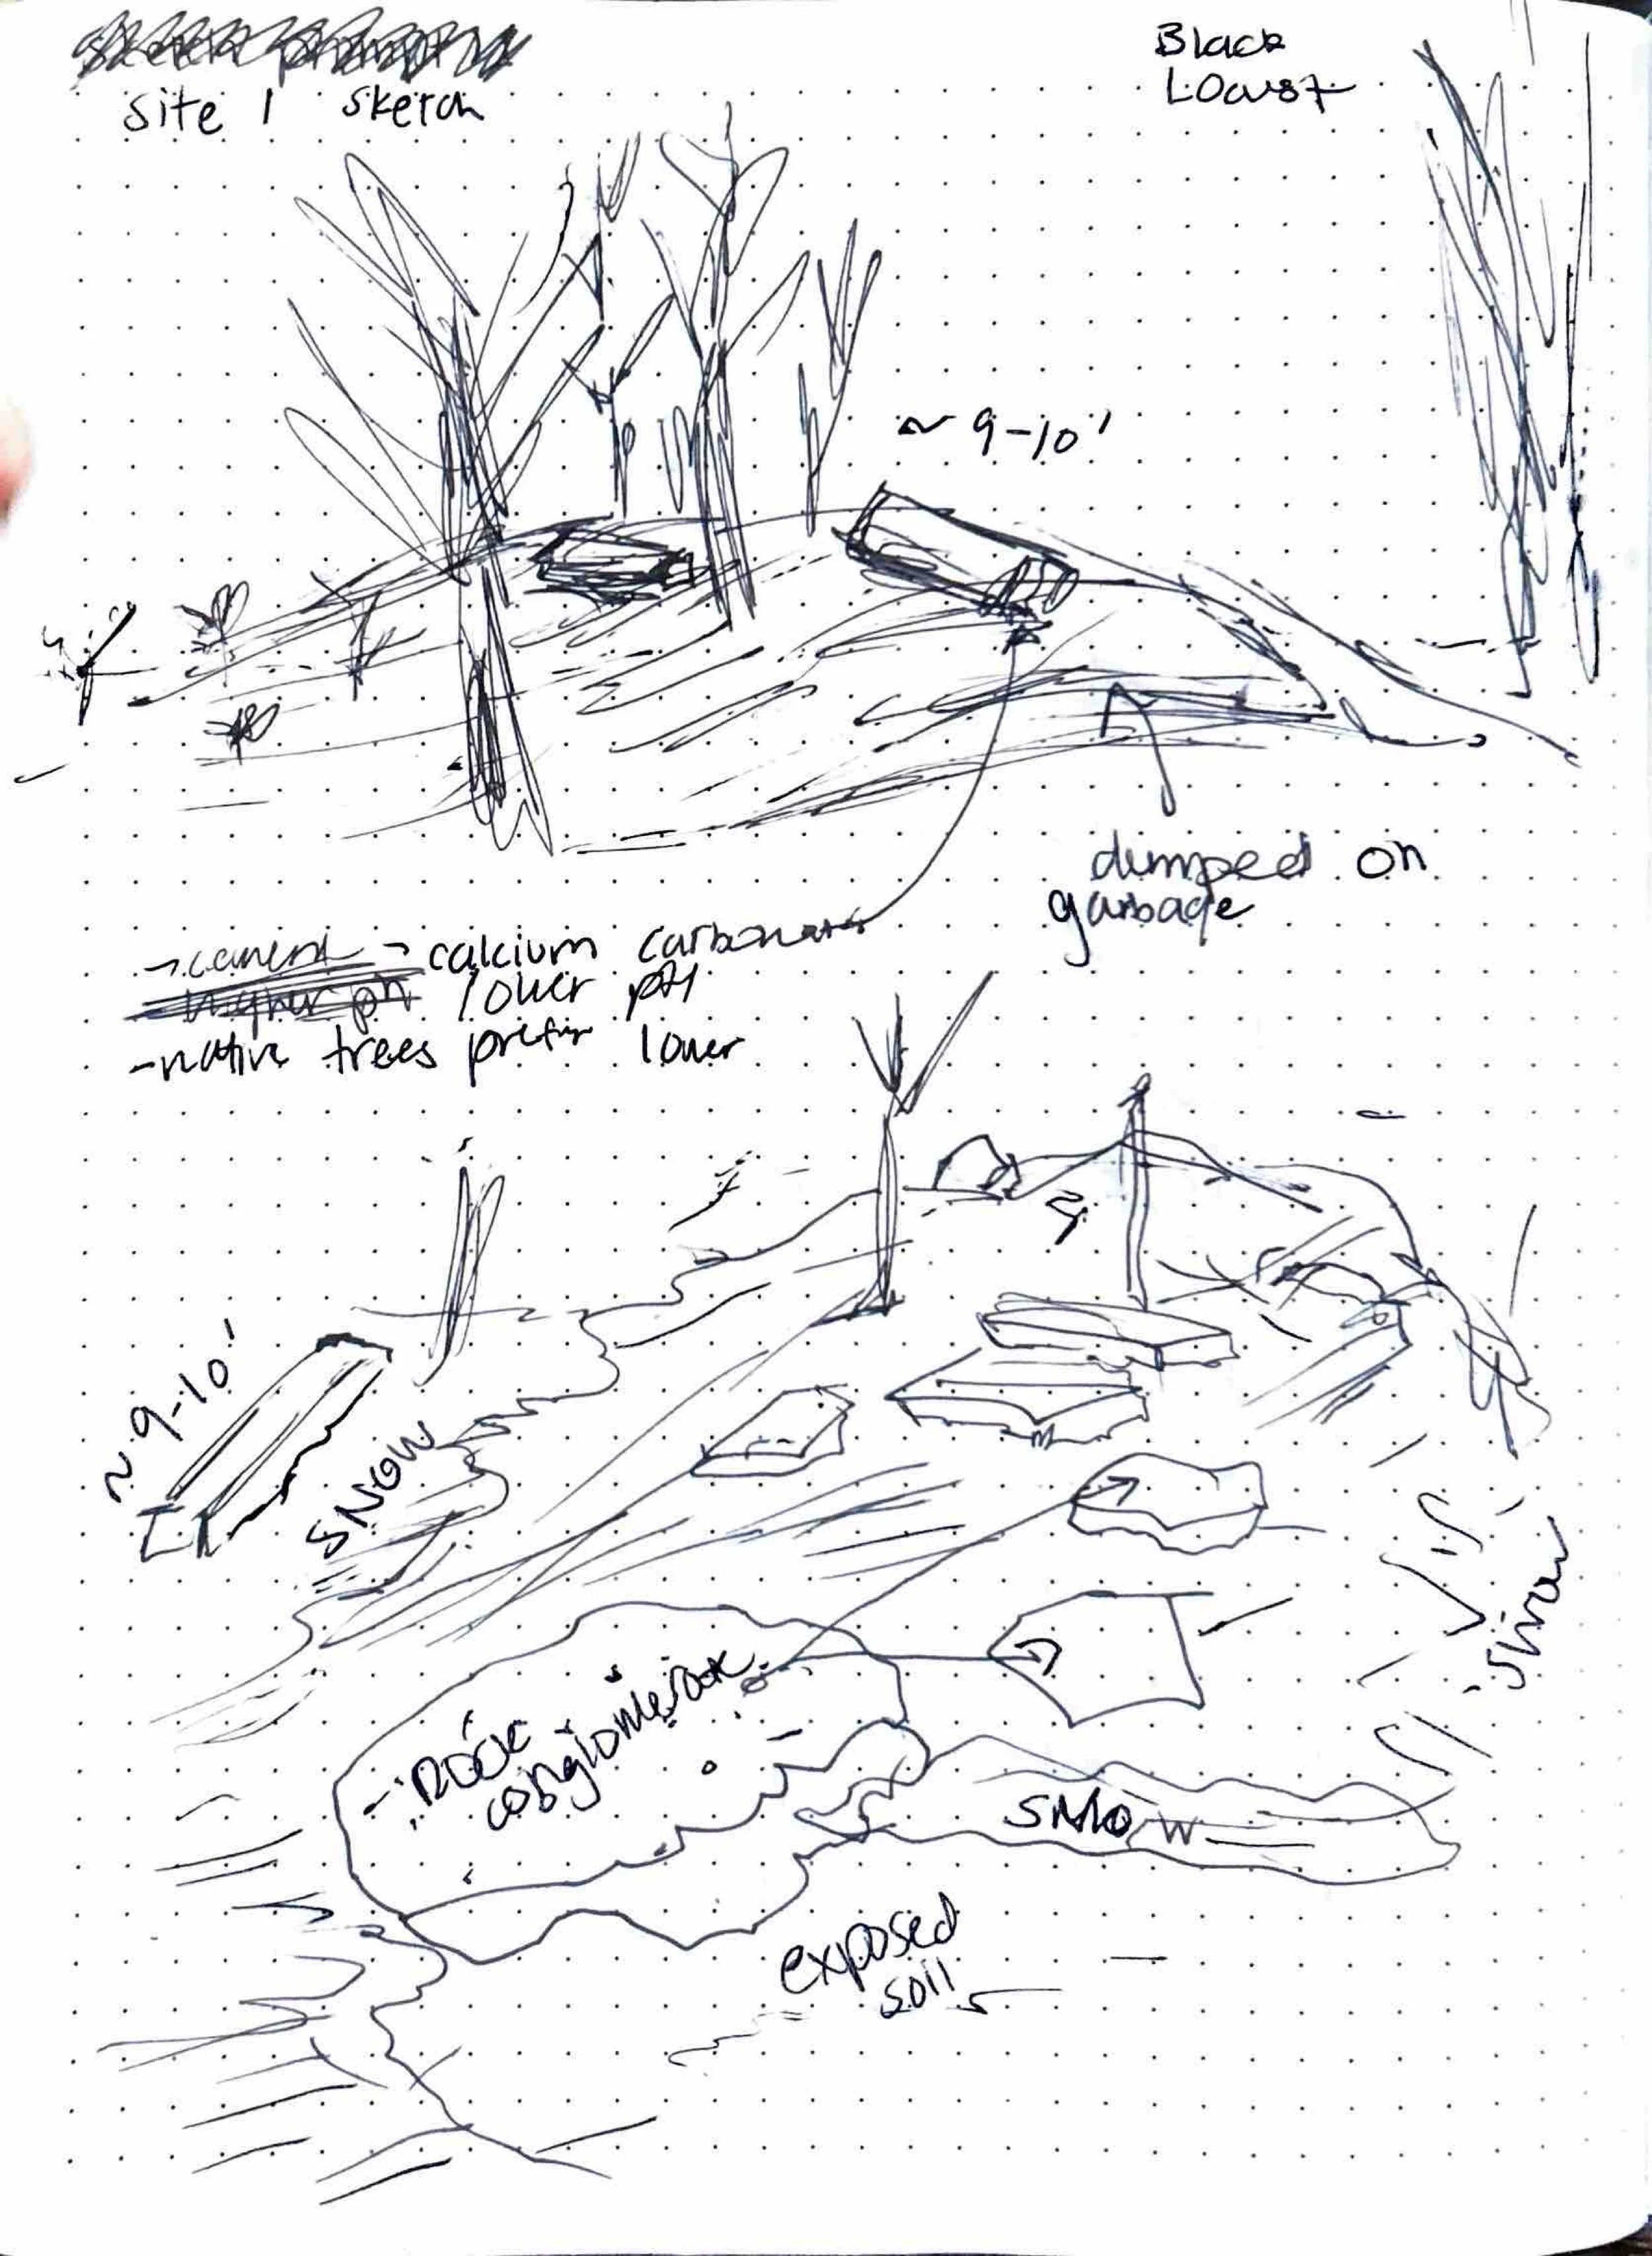 site 1 sketch
Black
Locust
~ 9-10'
dumped on
garbage
→ cement → calcium carbonate
higher ph lower pH
- native trees prefer lower
~ 9-10'
SNOW
straw
- Rock
conglomerate
SNOW
exposed
soil